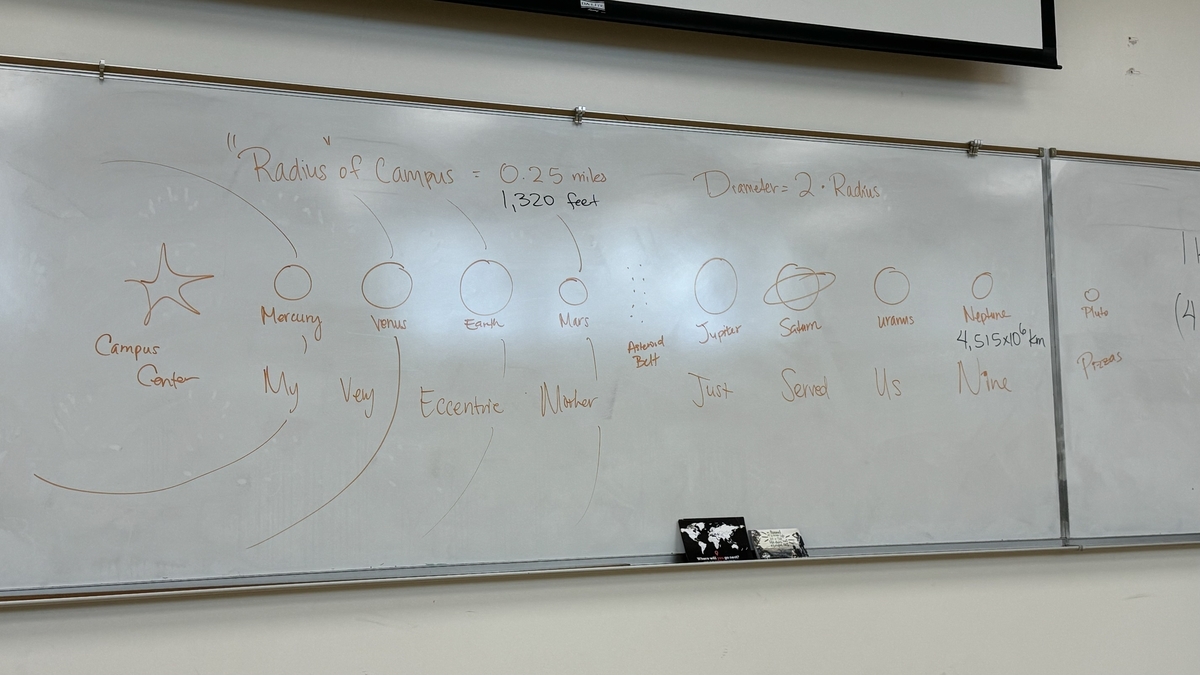 "Radius" of Campus = 0.25 miles
1,320 feet
Diameter = 2 · Radius
Mercury
Venus
Earth
Mars
Asteroid
Belt
Jupiter
Saturn
Uranus
Neptune
4,515x10⁶ km
Pluto
Campus
Center
My Very Eccentric Mother Just Served Us Nine Pizzas
(4